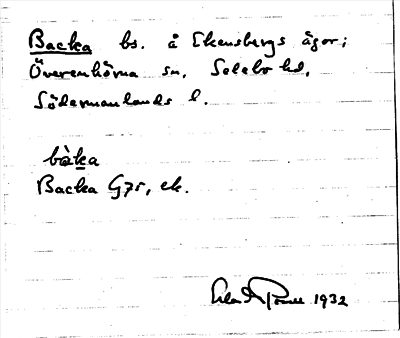 Backa bs. å Ekensbergs ägor;
Överenhörna sn, Selebo hd,
Södermanlands l.
bàka
Backa G75, ek.
1932